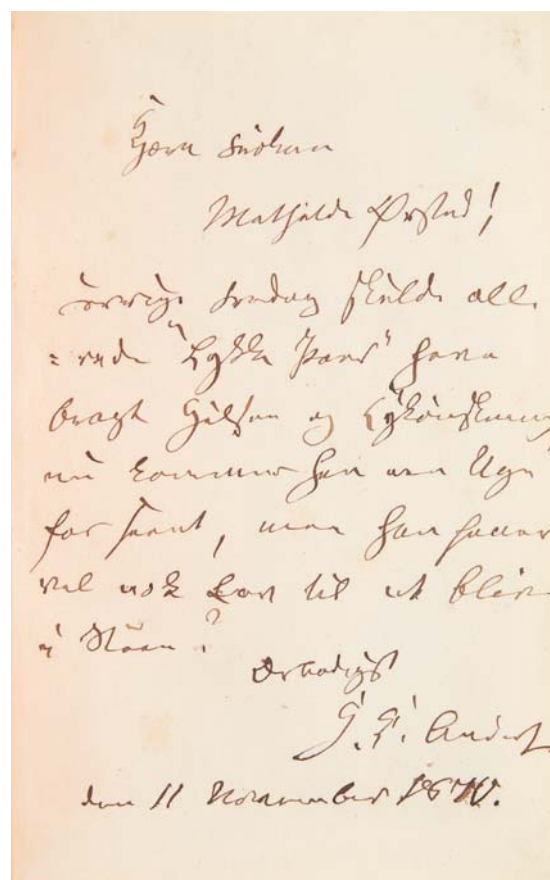 Kjære Frøken
Mathilde Ørsted!
forrige Fredag skulde alle
=rede "Lykke Peer" have
bragt Hilsen og Lykønskning
nu kommer han een Uge
for seent, men han faaer
vel nok Lov til at blive
i Stuen?
Ærbødigst
H. C. Anders
den 11 November 1870.